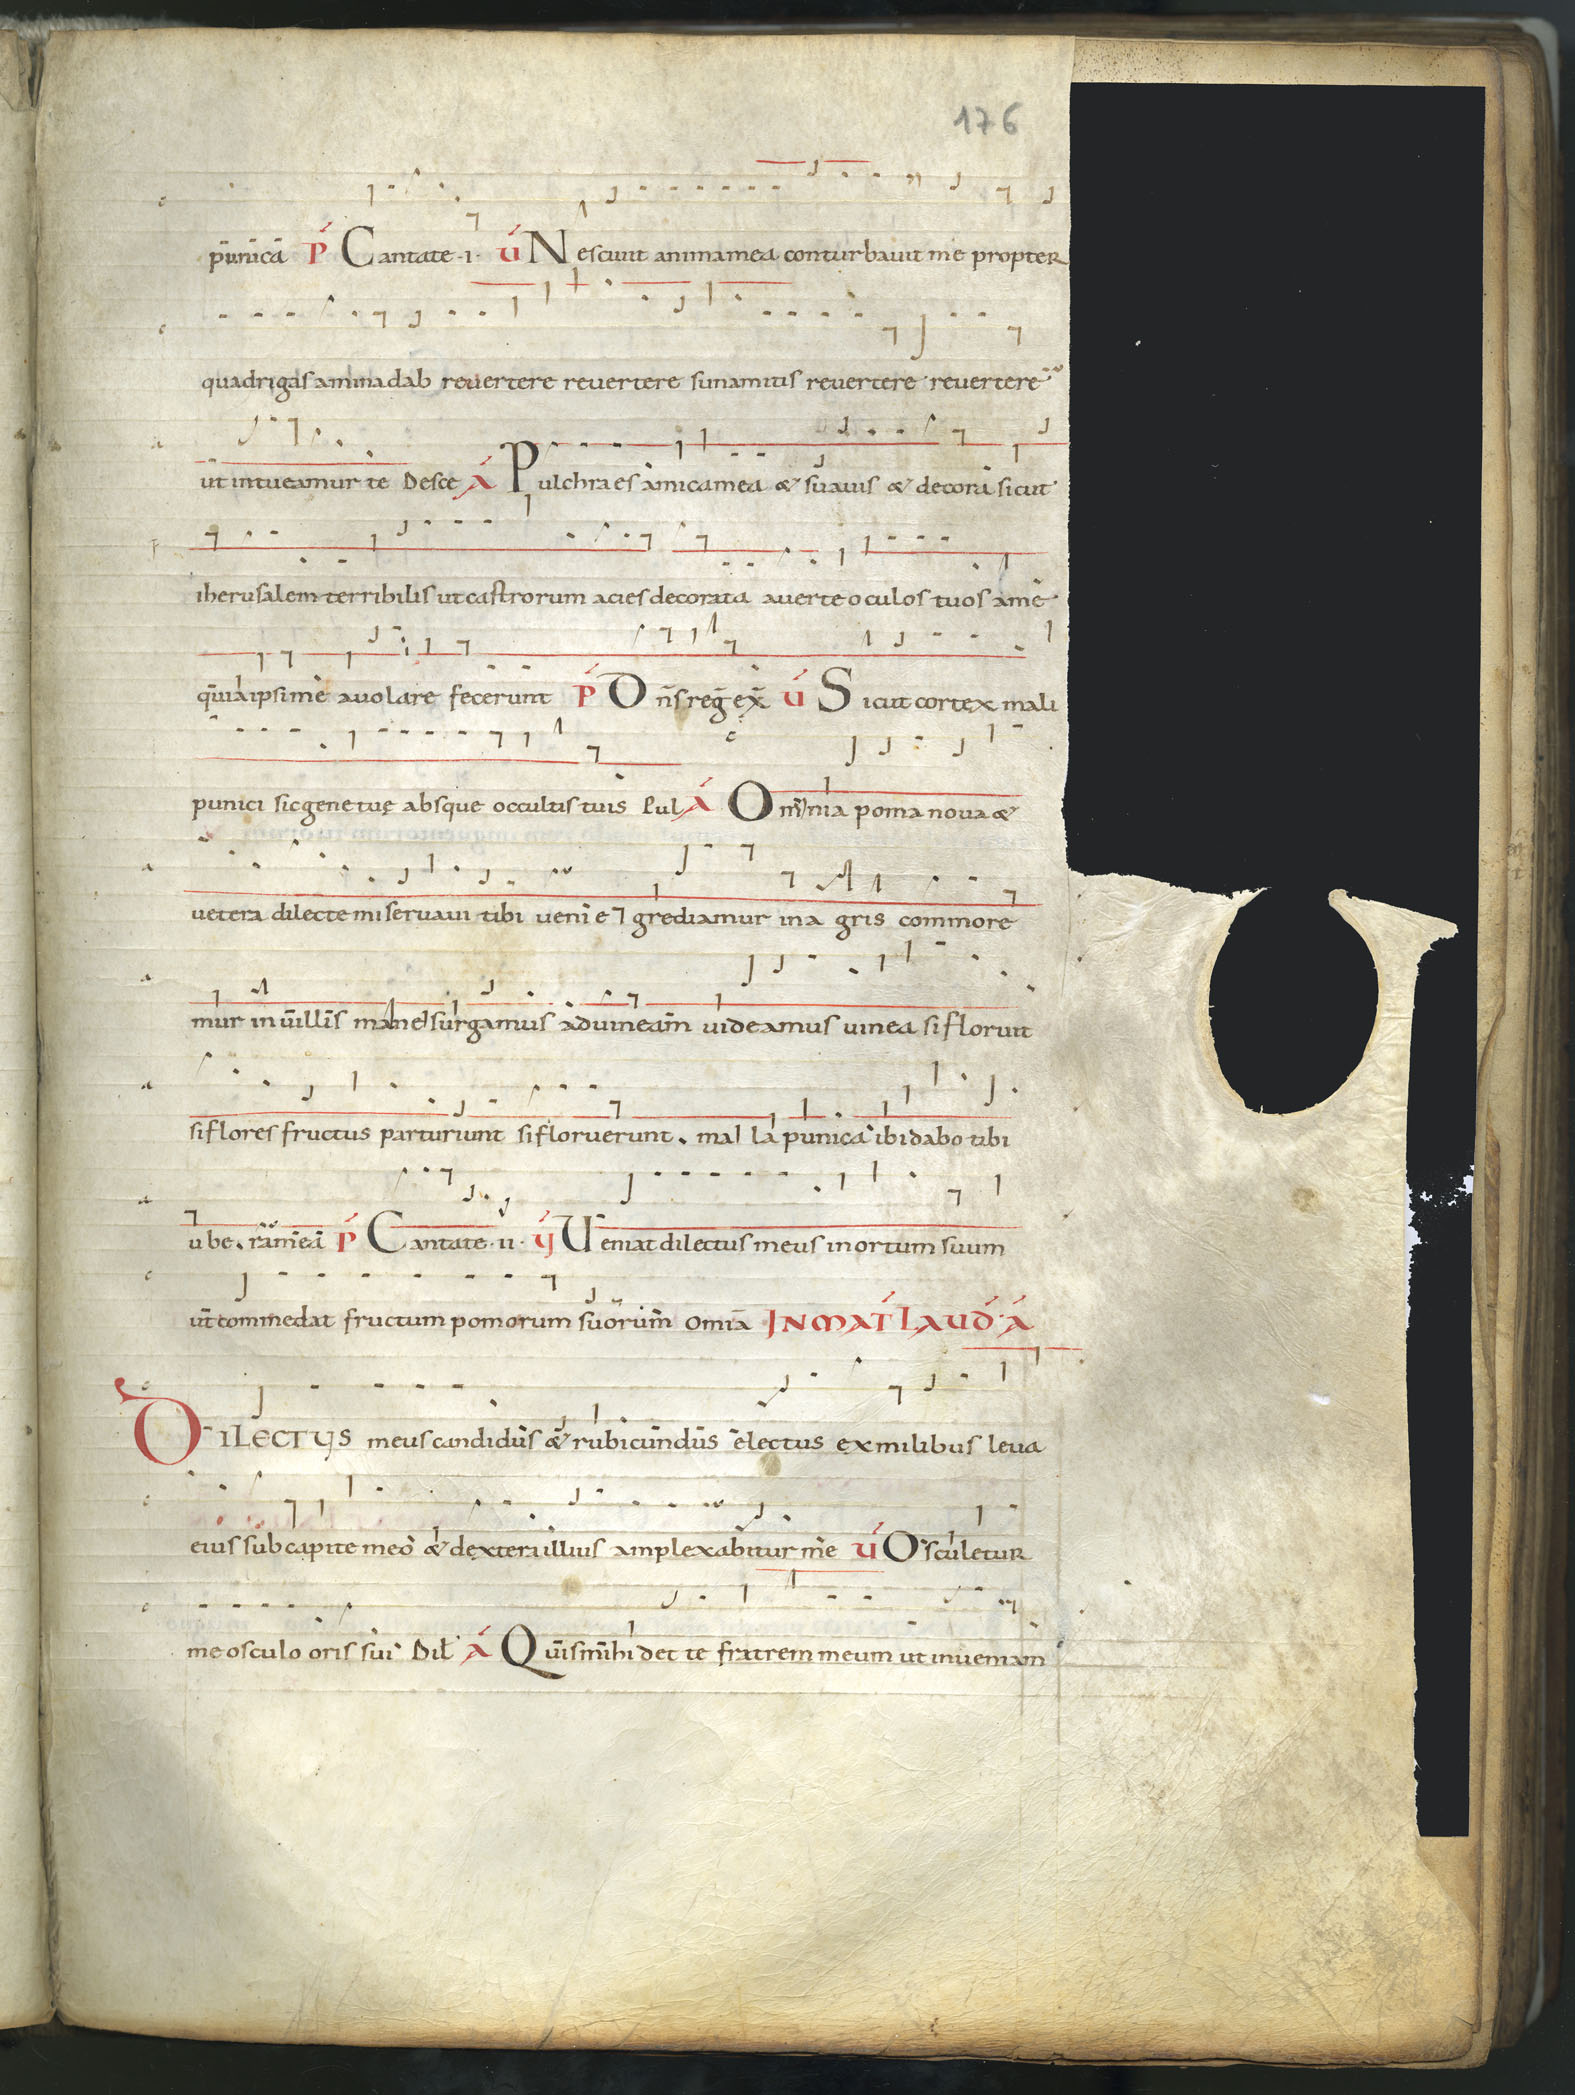 176
pūnicā P Cantate · I · V Nescivit anima mea conturbavit me propter
quadrigas aminadab revertere revertere sunamitis revertere revertere
ut intueamur te Desce A Pulchra es amica mea & suavis & decora sicut
iherusalem terribilis ut castrorum acies decorata averte oculos tuos a me
quia ipsi me avolare fecerunt P Dn̄s reḡ ex̄ V Sicut cortex mali
punici sic gene tuę absque occultis tuis Pul A Omnia poma nova &
vetera dilecte mi servavi tibi veni egrediamur in agris commore
mur in villis mane surgamus ad vineam videamus vinea si floruit
si flores fructus parturiunt si floruerunt . mala punica ibi dabo tibi
ubera mea P Cantate · II · V Veniat dilectus meus in ortum suum
ut commedat fructum pomorum suorum Omīa IN MAT LAUD · A
DILECTUS meus candidus & rubicundus electus ex milibus leva
eius sub capite meo & dextera illius amplexabitur me V Osculetur
me osculo oris sui Dil A Quis mihi det te fratrem meum ut inveniam